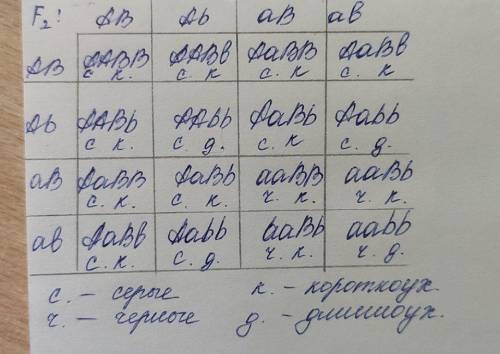 F₂: AB Ab aB ab
AB AABB AABb AaBB AaBb
с к. с. к с. к с. к
Ab AABb AAbb AaBb Aabb
с к. с. д. с. к с. д.
aB AaBB AaBb aaBB aaBb
с. к. с. к. ч. к. ч. к.
ab AaBb Aabb aaBb aabb
с. к. с. д. ч. к. ч. д.
с. – серые к. – короткоух.
ч. – черные д. – длинноух.